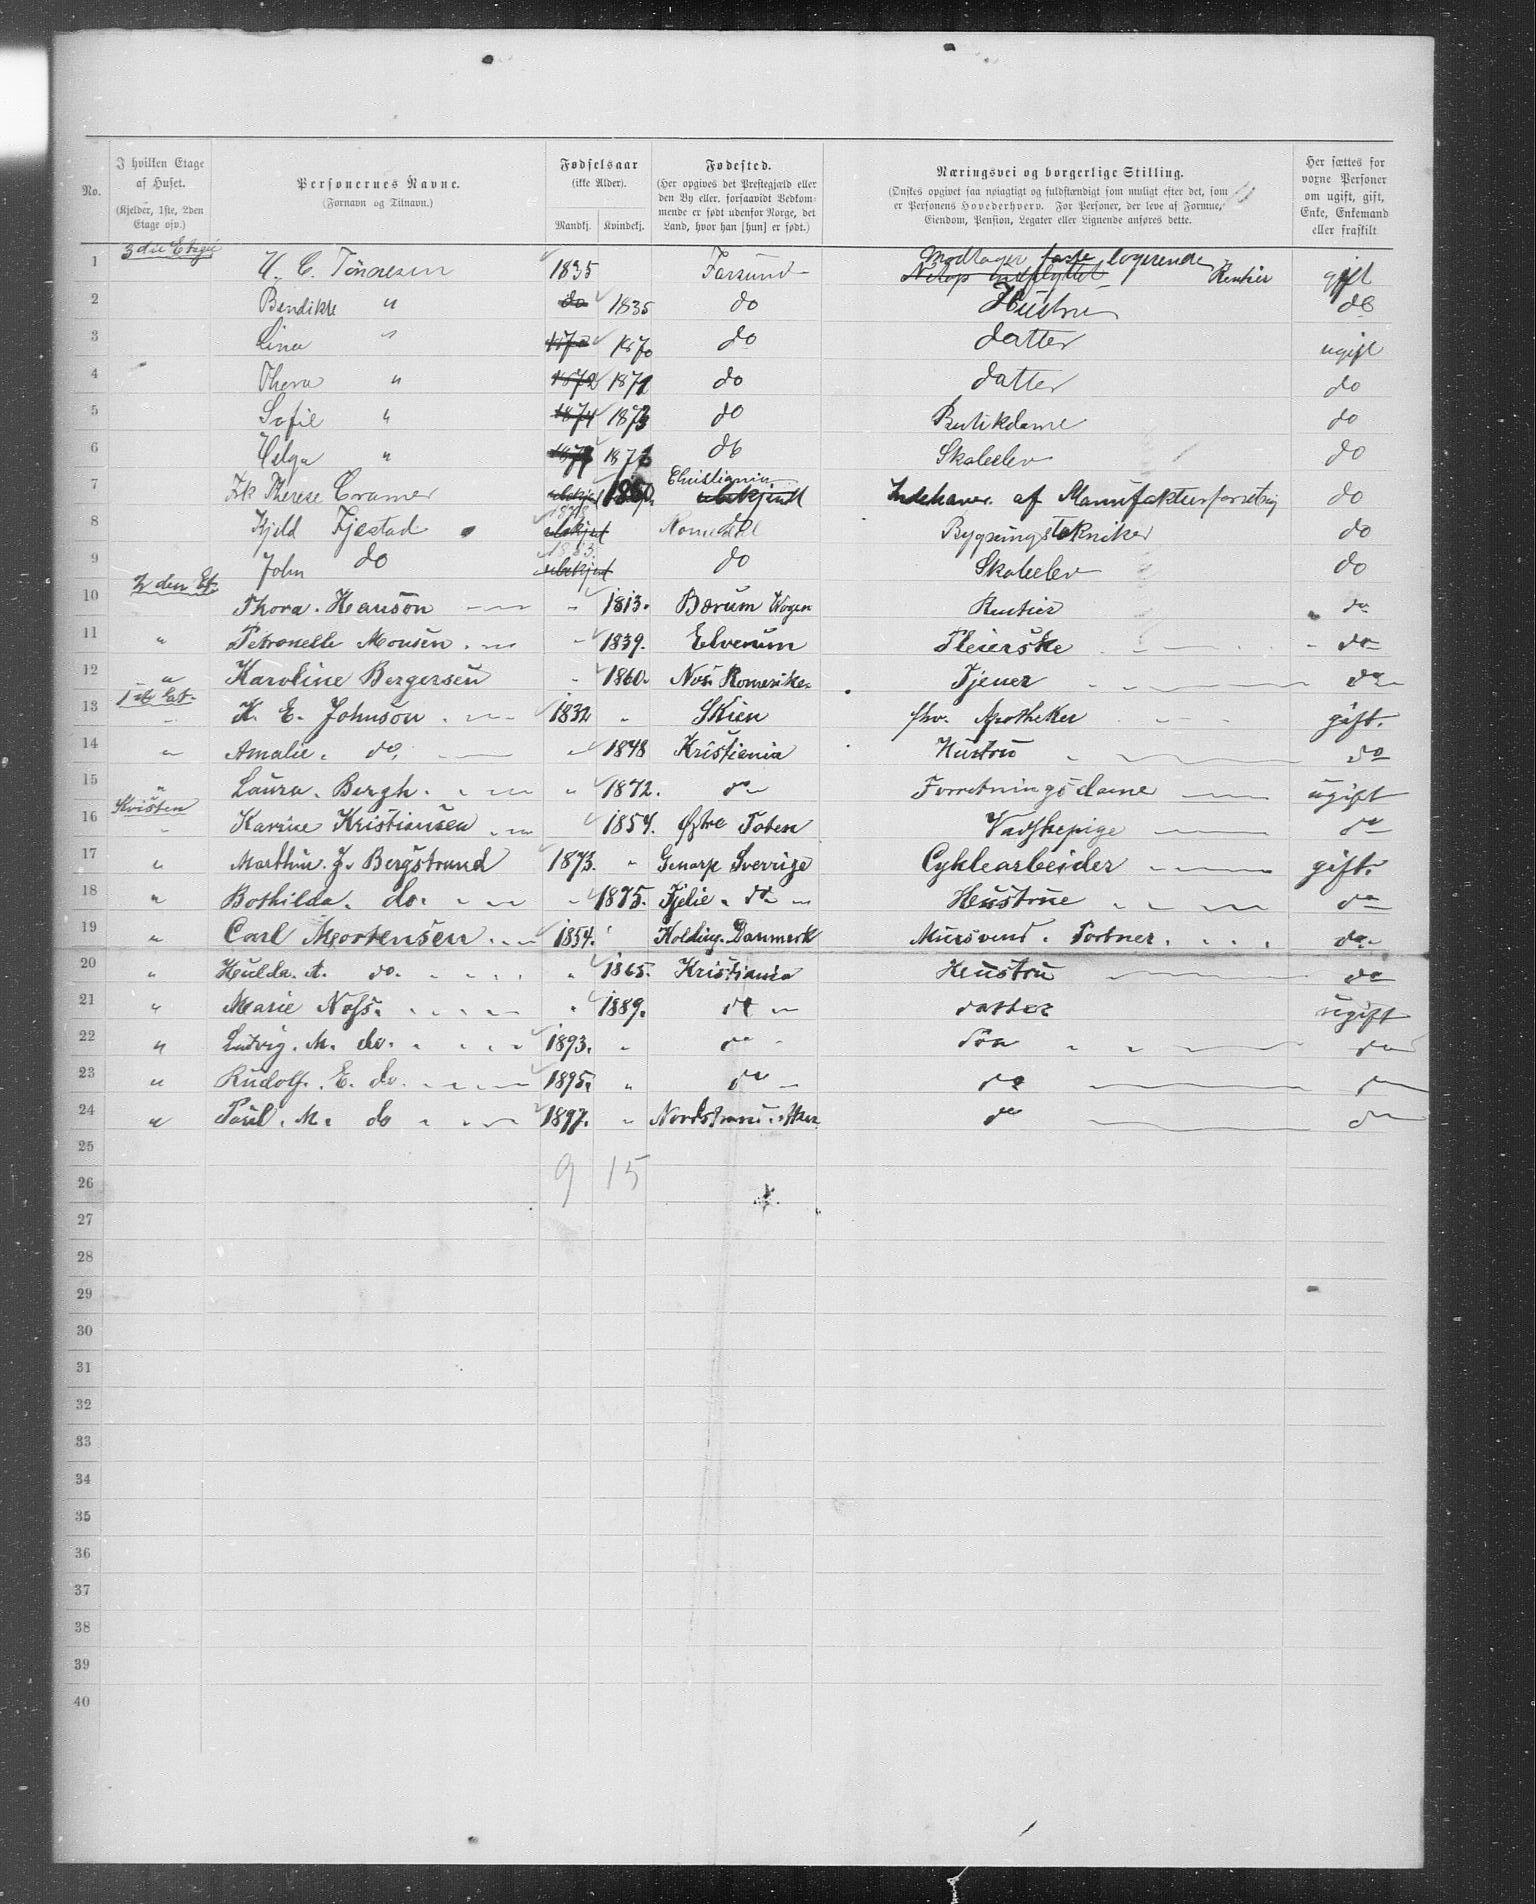 No.
I hvilken Etage af Huset.
(Kjelder, 1ste, 2den Etage osv.)
Personernes Navne.
(Fornavn og Tilnavn.)
Fødselsaar
(ikke Alder).
Mandkj. Kvindekj.
Fødested.
(Her opgives det Prestegjæld eller den By eller, forsaavidt Vedkommende er født udenfor Norge, det Land, hvor han [hun] er født.)
Næringsvei og borgerlige Stilling.
(Ønskes opgivet saa nøiagtigt og fuldstændigt som muligt efter det, som er Personens Hovederhverv. For Personer, der leve af Formue, Eiendom, Pension, Legater eller Lignende anføres dette.
Her sættes for voxne Personer om ugift, gift, Enke, Enkemand eller fraskilt
1 3die Etage H. C. Tönnesen 1835 Farsund Modtager faste logerende Netop indflyttet Rentier gift
2 Bendikte " do 1835 do Hustru do
3 Lina " 1870 do datter ugift
4 Thora " 1872 1871 do datter do
5 Sofie " 1874 1873 do Butikdame do
6 Helga " 1877 do Skoleelev do
7 Frk Therese Cramer ubekjent 1860 Christiania ubekjendt Indehaver af Manufakturforretnig do
8 Kjeld Fjestad 1878 ubekjent Romedal do Bygningstekniker do
9 John do 1883. ubekjent do Skoleelev do
10 2den Et. Thora. Hanson " 1813. Bærum Rentier do
11 " Petronelle Monsen " 1839. Elverum Pleierske do
12 " Karoline Bergersen " 1860. Nes Romerike Tjener do
13 1ste Eat. K. E. Johnson 1832 " Skien fhv. Apotheker gift.
14 " Amalie. do. " 1848 Kristiania Hustru do
15 " Laura. Bergh. " 1872. do Forretningsdame ugift
16 Kvisten Karine Kristiansen 1854. Østre Toten Vadskepige do
17 " Marthin. J. Bergstrand 1873. " Genarp Sverrige Cyklearbeider gift.
18 " Bothilda. do. " 1875. Fjelie. do Hustrue do
19 " Carl Mortensen 1854. Kolding. Danmark Mursvend. Portner. do
20 " Hulda. A. do. " 1865. Kristiania Hustru do
21 " Marie Nøss. " 1889. do datter ugift
22 " Ludvig. M. do. 1893. " do Søn do
23 " Rudolf. E. do. 1895. " do do do
24 " Paul. M. do 1897. " Nordstrand. Aker do do
25
26 9 15
27
28
29
30
31
32
33
34
35
36
37
38
39
40